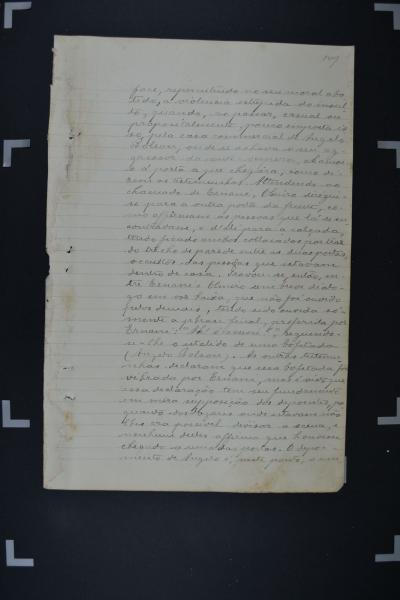 face, repercutindo no seu moral aba-
tido, a violencia soffrida do insul-
to, quando, ao passar, casual ou
propositalmente, pouco importa is-
so, pela casa commercial de Angelo
Bolson, onde se achava o seu ag-
gressor
á porta a que chegára, como di-
zem as testemunhas. Attendendo ao
chamado de Ernane, Olmiro dirigiu-
se para a outra porta da frente, co-
mo as pessoas que lá se en-
contravam, e d'alli para a calçada,
tendo ficado ambos collocados por traz
do trecho de parede entre as duas portas,
occultos das pessoas que estavam
dentro de casa. Travou-se, então, en-
tre Ernane e Olmiro um breve dialo-
go em voz baixa, que não foi ouvido
pelos demais, tendo sido ouvida só-
mente a phrase final, proferida por
Ernane: seguindo-
se-lhe o estalido de uma bofetada
(Angelo Bolson). As outras testemu-
nhas declaram que essa bofetada foi
vibrada por Ernane, mas é certo que
essa declaração tem seu fundamento
em méra supposição dos depoentes, por-
quanto dos logares onde estavam não
lhes era possivel divisar a scena, e
nenhum delles affirma que houvesse
chegado a uma das portas. O depoi-
mento de Angelo é, neste ponto, o em-